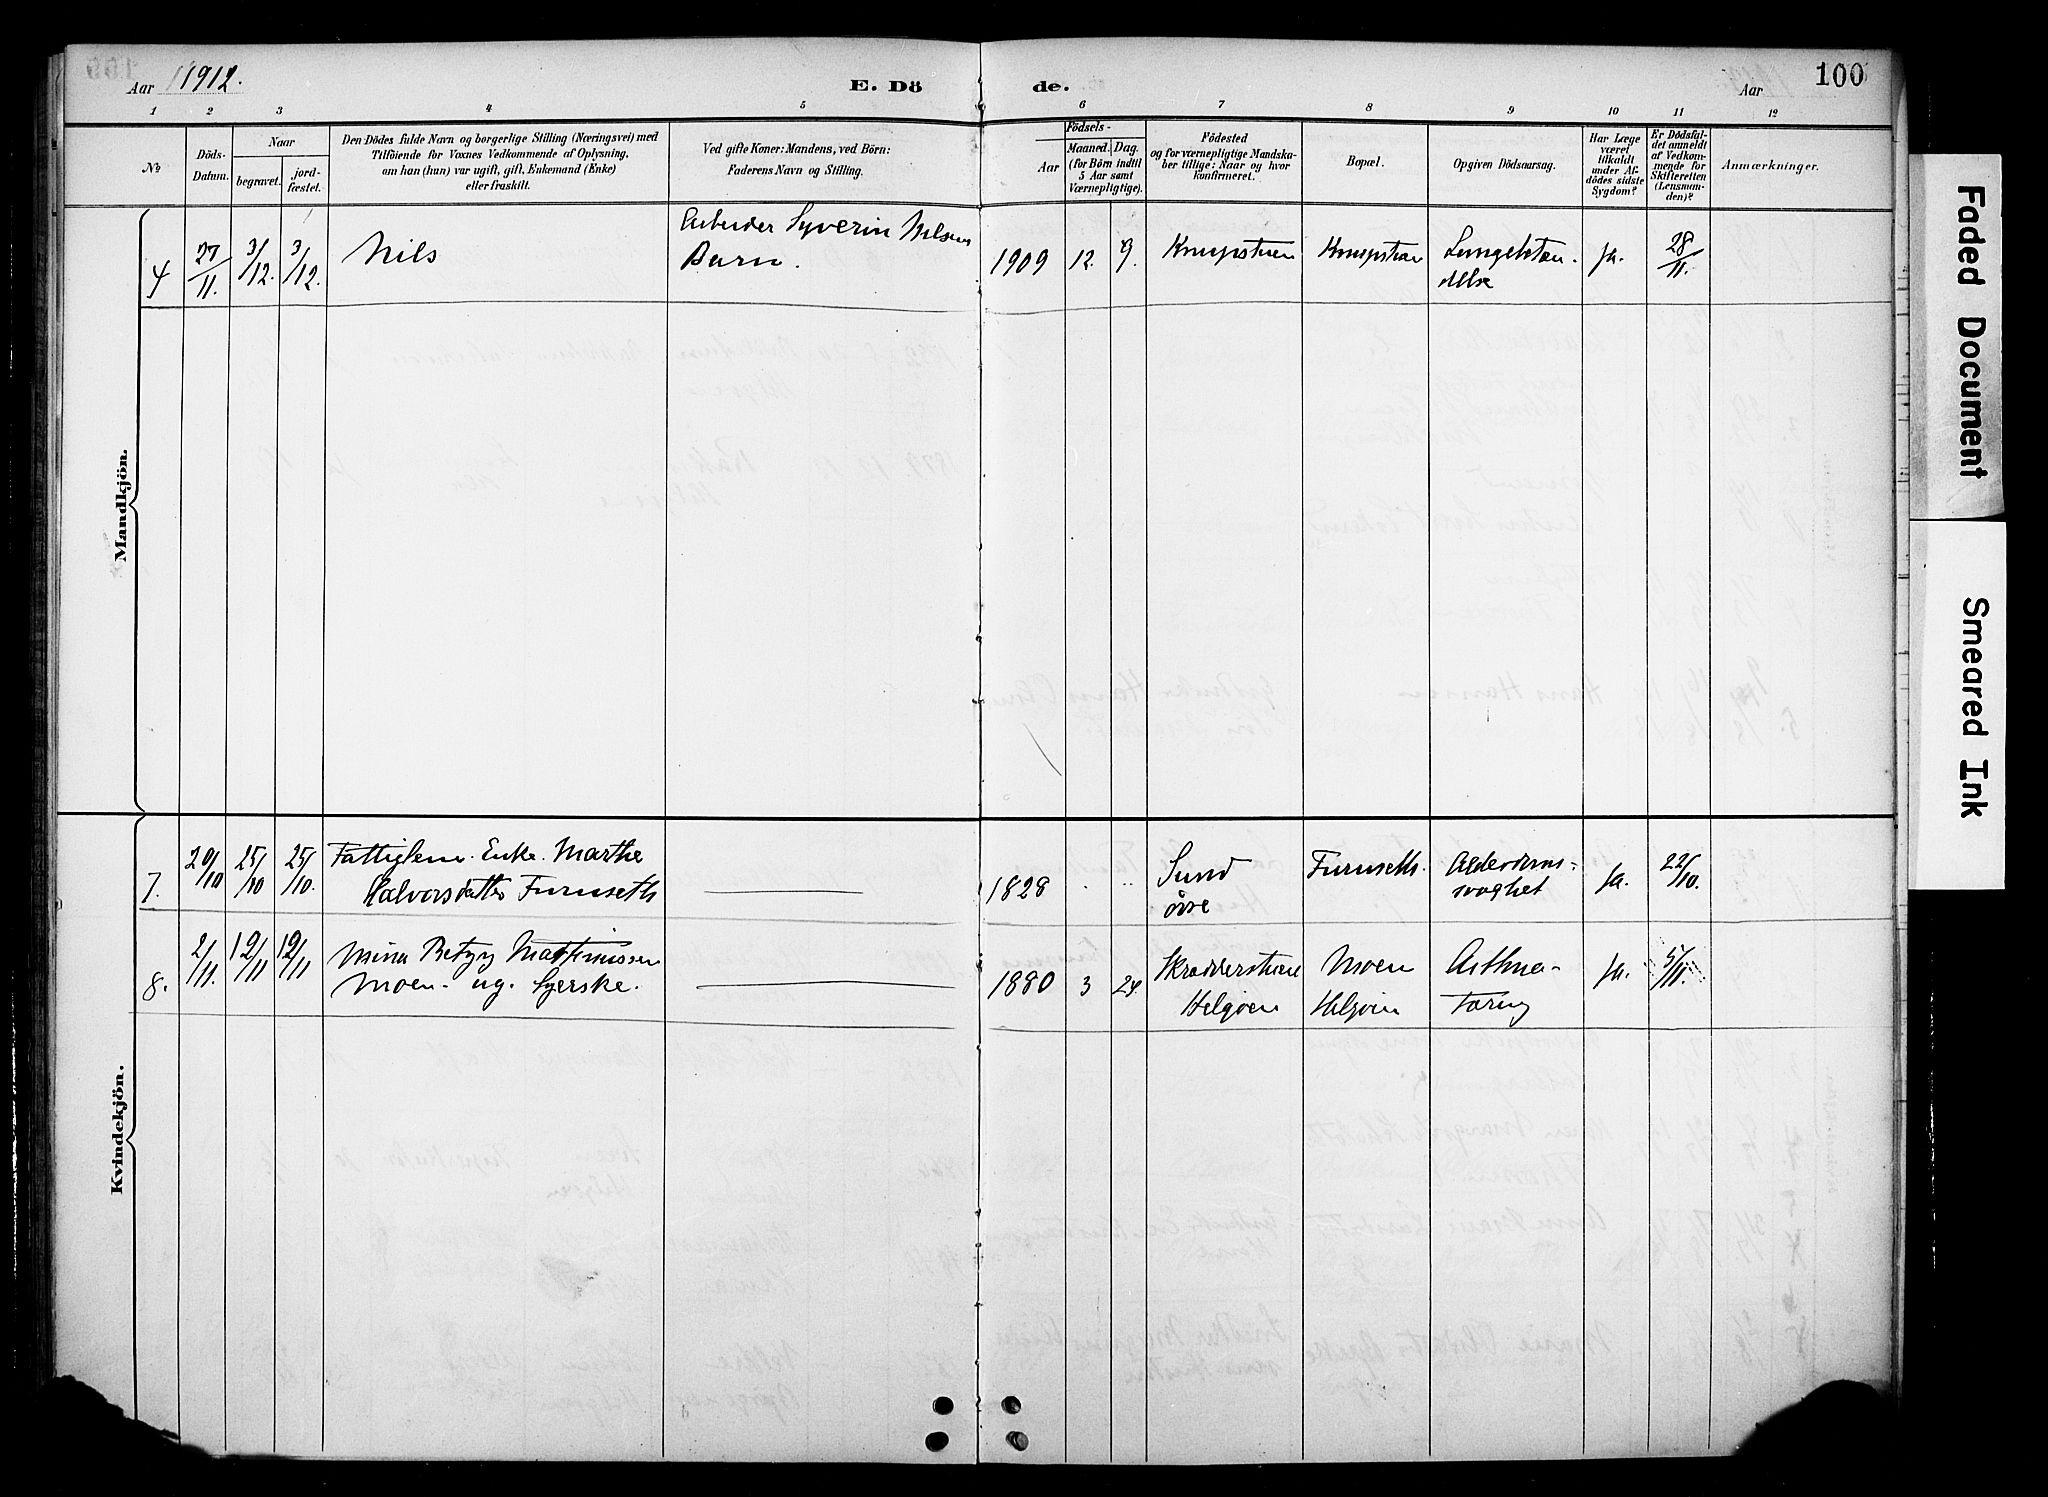 Aar 1912.
E. Dö
de.
Aar
100
1 2 3 4 5 6 7 8 9 10 11 12
No
Döds-
Datum.
Naar
begravet.
jord-
fæstet.
Den Dödes fulde Navn og borgerlige Stilling (Næringsvei) med
Tilföiende for Voxnes Vedkommende af Oplysning,
om han (hun) var ugift, gift, Enkemand (Enke)
eller fraskilt.
Ved gifte Koner: Mandens, ved Börn:
Faderens Navn og Stilling.
Födsels-
Aar
Maaned. Dag.
(for Börn indtil
5 Aar samt
Værnepligtige).
Födested
og for værnepligtige Mandska-
ber tillige: Naar og hvor
konfirmeret.
Bopæl.
Opgiven Dödsaarsag.
Har Læge
været
tilkaldt
under Af-
dödes sidste
Sygdom?
Er Dödsfal-
det anmeldt
af Vedkom-
mende for
Skifteretten
(Lensman-
den)?
Anmærkninger.
Mandkjön.
4 27/11. 3/12. 3/12. Nils
Arbeider Syverin Nilsens
Barn.
1909 12. 9. Knupstuen Knupstuen Lungebetæn-
delse
Ja. 28/11.
Kvindekjön.
7. 20/10 25/10 25/10. Fattiglem. Enke. Marthe
Halvorsdatter Furuseth
1828 Sund
övre
Furuseth. Alderdoms-
svaghet
Ja. 22/10.
8. 2/11. 12/11 12/11 Mina Betzy Mathinussen
Moen. ug. Syerske.
1880 3 24. Skrædderstuen
Helgøen
Moen
Helgøen
Asthma-
tæring
Ja. 5/11.
Faded Document
Smeared Ink